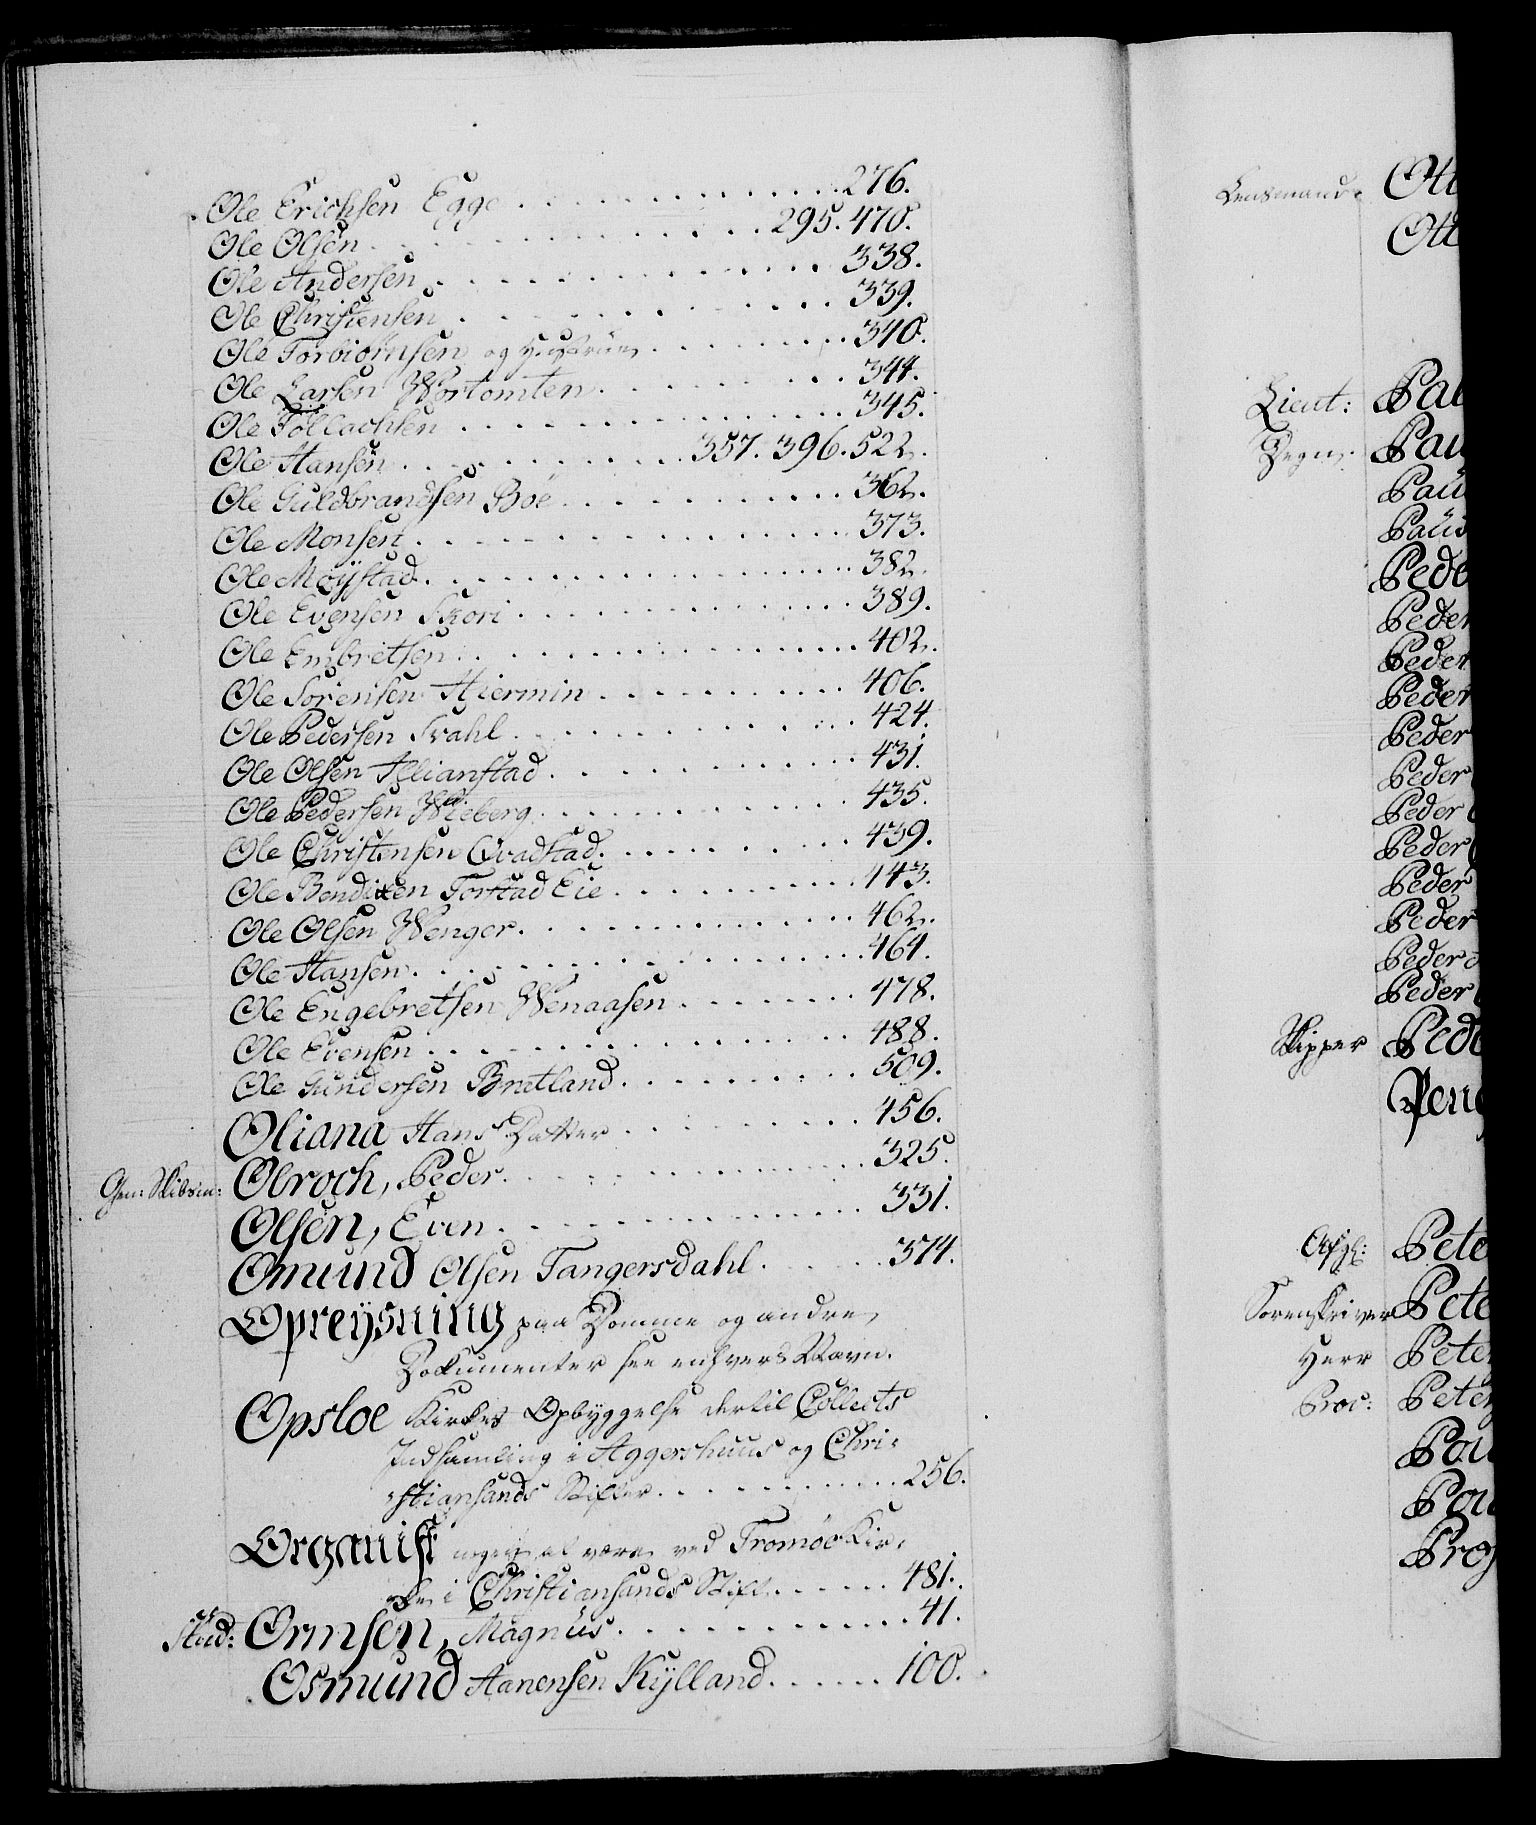 Ole Erichsen Egge . . . . . . . . . . 276.
Ole Olsen . . . . . . . . . . 295. 470.
Ole Andersen . . . . . . . . . . 338.
Ole Christensen . . . . . . . . . . 339.
Ole Torbiørnsen og Hustrue . . . . . . . 340.
Ole Larsen Wortomten . . . . . . . . 344.
Ole Tollachsen . . . . . . . . . . 345.
Ole Hansen . . . . . . . . 357. 396. 522.
Ole Guldbrandsen Boe . . . . . . . . 362.
Ole Monsen . . . . . . . . . . 373.
Ole Moÿstad . . . . . . . . . . 382.
Ole Evensen Skori . . . . . . . . . 389.
Ole Embretsen . . . . . . . . . . 402.
Ole Sørensen Hiermin . . . . . . . . 406.
Ole Pedersen Svahl . . . . . . . . . 424.
Ole Olsen Illianstad . . . . . . . . 431.
Ole Pedersen Wieberg . . . . . . . . 435.
Ole Christensen Qvadstad . . . . . . . 439.
Ole Bendixen Torstad Eie . . . . . . . 443.
Ole Olsen Wenger . . . . . . . . . 462.
Ole Hansen . . . . . . . . . . 464.
Ole Engebretsen Wenaasen . . . . . . 478.
Ole Evensen . . . . . . . . . . 488.
Ole Gundersen Bretland . . . . . . . 509.
Oliana Hans Datter . . . . . . . . 456.
Olroch, Peder . . . . . . . . . 325.
Olsen, Even . . . . . . . . . 331.
Omund Olsen Tangersdahl . . . . . 374.
Opreysning paa Domme og andre
Dokumenter see enhvers Navn.
Opsloe Kirkes Opbyggelse dertil Collects
Indsamling i Aggershuus og Chri=
=stiansands Stifter . . . . . . . . 256.
Organist ingen at være ved Tromøe Kir=
=ke i Christiansands Stift . . . . . . 481.
Stud: Ormsen, Magnus . . . . . . . . 41.
Osmund Aanensen Kÿlland . . . . . . 100.
Lensmand Ott
Ott
Lieut: Pal
Degn Pau
Pau
Paus
Pede
Peder
Peder
Peder
Peder
Peder
Peder
Peder
Peder
Peder
Peder
Peder
Skipper Pede
Peng
Pete
Sorenskriver Pete
Herr Peter
Proc: Peter
Pou
Pou